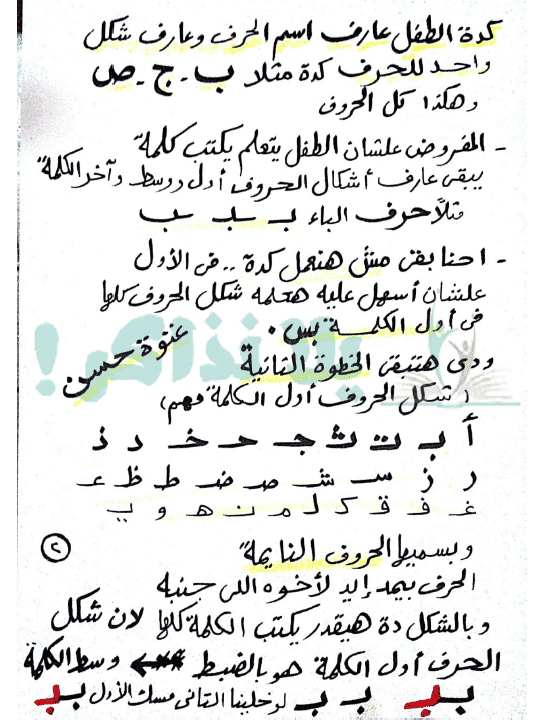 كدة الطفل عارف اسم الحرف وعارف شكل
واحد للحرف كدة مثلا ب - ج - ص
وهكذا كل الحروف
- المفروض علشان الطفل يتعلم يكتب كلمة
يبقى عارف أشكال الحروف أول ووسط وآخر الكلمة
مثلاً حرف الباء بـ ـبـ ـب
- احنا بقى مش هنعمل كدة .. فى الأول
علشان أسهل عليه هعلمه شكل الحروف كلها
فى أول الكلمـــة بس .
عنوة حسن
يلا نذاكر!
ودى هتبقى الخطوة التانية
(شكل الحروف أول الكلمة مهم)
أ بـ تـ ثـ جـ حـ خـ د ذ
ر ز سـ شـ صـ ضـ طـ ظـ عـ
غـ فـ قـ كـ لـ مـ نـ هـ و يـ
وبسميها الحروف النايمة"
الحرف بيمد إيد لأخوه اللى جنبه
وبالشكل دة هيقدر يكتب الكلمة كلها لان شكل
الحرف أول الكلمة هو بالضبط وسط الكلمة
بـبـ بـ بـ لو خلينا التانى مسك الأول بـبـ
٢